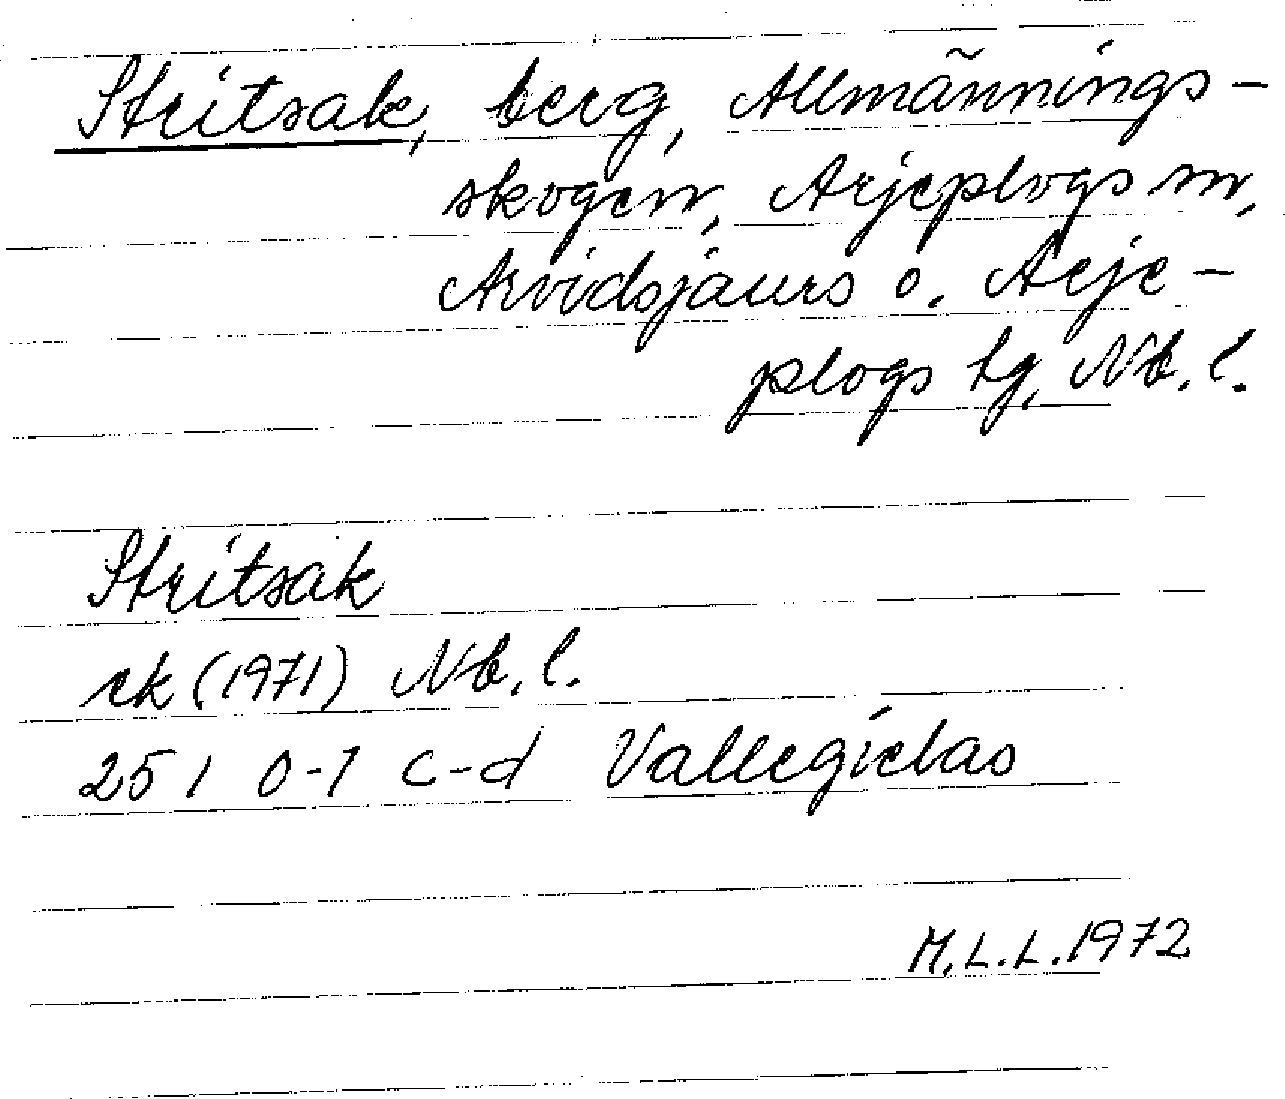 Stritsak, berg, Allmännings-
skogen, Arjeplogs sn,
Arvidsjaurs o. Arje-
plogs tg, Nb. l.
Stritsak
ek (1971) Nb. l.
25 I 0-1 c-d Vallegielas
M.L.L. 1972